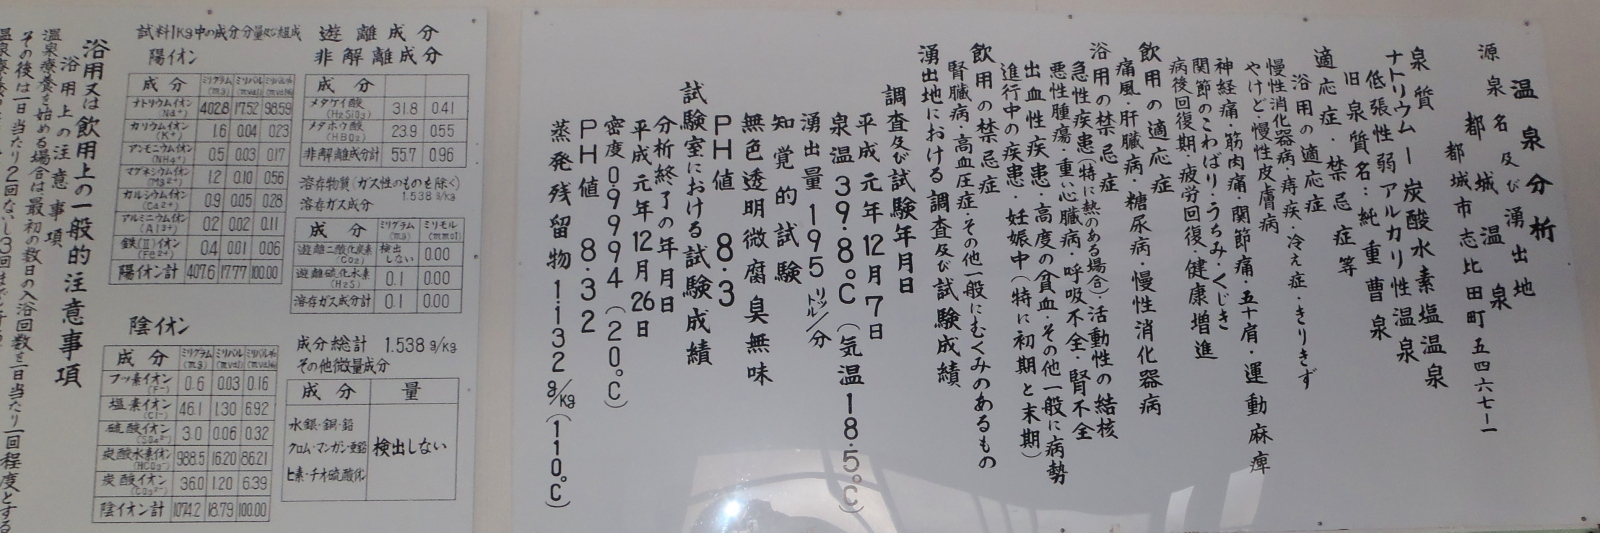 温泉分析
源泉名及び湧出地
都城温泉
都城市志比田町五四六七ー一
泉質
ナトリウムー炭酸水素塩温泉
低張性弱アルカリ性温泉
旧泉質名：純重曹泉
適応症・禁忌症等
浴用の適応症
慢性消化器病・痔疾・冷え症・きりきず
やけど・慢性皮膚病
神経痛・筋肉痛・関節痛・五十肩・運動麻痺
関節のこわばり・うちみ・くじき
病後回復期・疲労回復・健康増進
飲用の適応症
痛風・肝臓病・糖尿病・慢性消化器病
浴用の禁忌症
急性疾患(特に熱のある場合)・活動性の結核
悪性腫瘍・重い心臓病・呼吸不全・腎不全
出血性疾患・高度の貧血・その他一般に病勢
進行中の疾患・妊娠中(特に初期と末期)
飲用の禁忌症
腎臓病・高血圧症・その他一般にむくみのあるもの
湧出地における調査及び試験成績
調査及び試験年月日
平成元年12月7日
泉温 39.8℃(気温18.5℃)
湧出量 195リットル/分
知覚的試験
無色透明微腐臭無味
PH値 8.3
試験室における試験成績
分析終了の年月日
平成元年12月26日
密度0.9994(20℃)
PH値 8.32
蒸発残留物1.132g/Kg(110℃)
試料1Kg中の成分分量及び組成
遊離成分
陽イオン
成分 ミリグラム(mg) ミリバル(mval) ミリバル%(mval%)
ナトリウムイオン(Na+) 402.8 17.52 98.59
カリウムイオン(K+) 1.6 0.04 0.23
アンモニウムイオン(NH4+) 0.5 0.03 0.17
マグネシウムイオン(Mg2+) 1.2 0.10 0.56
カルシウムイオン(Ca2+) 0.9 0.05 0.28
アルミニウムイオン(Al3+) 0.2 0.02 0.11
鉄(Ⅱ)イオン(Fe2+) 0.4 0.01 0.06
陽イオン計 407.6 17.77 100.00
陰イオン
成分 ミリグラム(mg) ミリバル(mval) ミリバル%(mval%)
フッ素イオン(F-) 0.6 0.03 0.16
塩素イオン(Cl-) 46.1 1.30 6.92
硫酸イオン(SO42-) 3.0 0.06 0.32
炭酸水素イオン(HCO3-) 988.5 16.20 86.21
炭酸イオン(CO32-) 36.0 1.20 6.39
陰イオン計 1074.2 18.79 100.00
非解離成分
成分
メタケイ酸(H2SiO3) 31.8 0.41
メタホウ酸(HBO2) 23.9 0.55
非解離成分計 55.7 0.96
溶存物質(ガス性のものを除く)
1.538g/kg
溶存ガス成分
成分 ミリグラム(mg) ミリモル(mmol)
遊離二酸化炭素(CO2) 検出しない 0.00
遊離硫化水素(H2S) 0.1 0.00
溶存ガス成分計 0.1 0.00
成分総計 1.538g/kg
その他微量成分
成分 量
水銀・銅・鉛
クロム・マンガン・亜鉛
ヒ素・チオ硫酸イオン
検出しない
浴用又は飲用上の一般的注意事項
浴用上の注意事項
温泉療養を始める場合は最初の数日の入浴回数を一日当たり一回程度とする
その後は一日当たり2回ないし3回まで